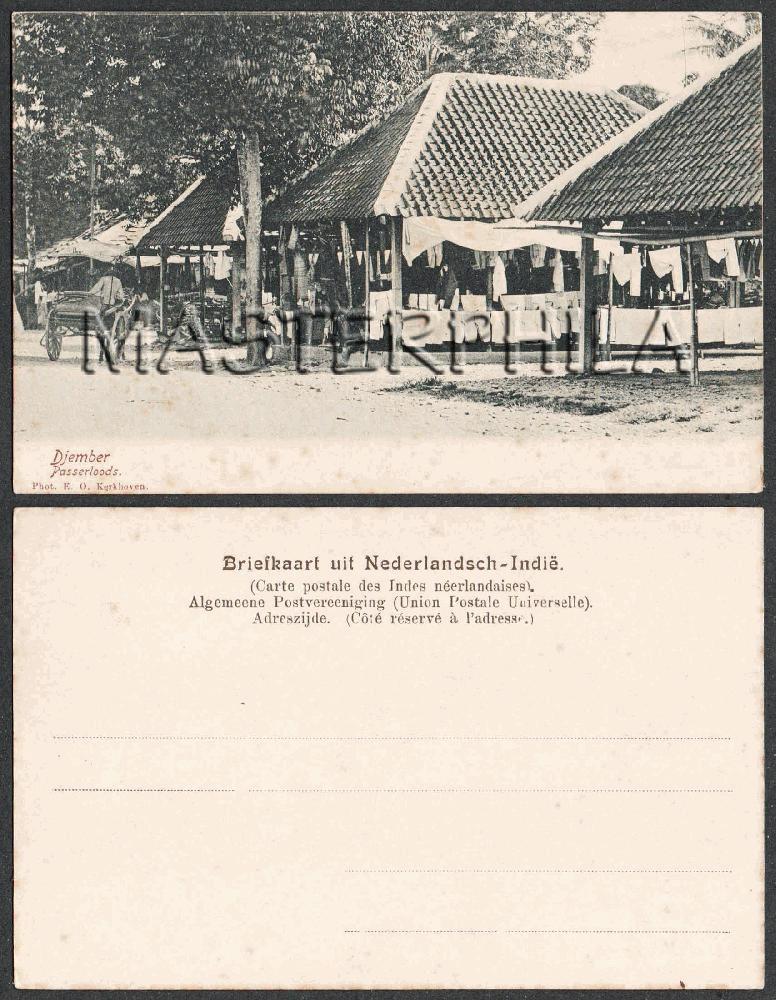 MASTERPHILA
Djember
Passerloods.
Phot. E. O. Kerkhoven.
Briefkaart uit Nederlandsch-Indië.
(Carte postale des Indes néerlandaises).
Algemeene Postvereeniging (Union Postale Universelle).
Adreszijde. (Côté réservé à l'adresse.)